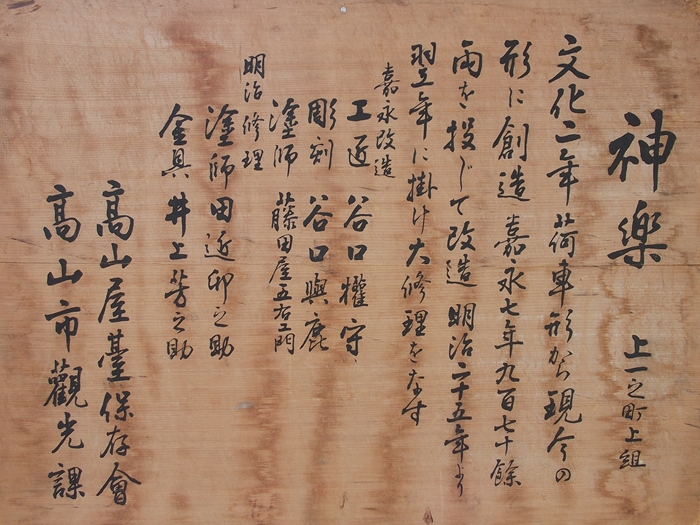 神樂 上一之町上組
文化二年荷車形から現今の
形に創造嘉永七年九百七十餘
両を投じて改造明治二十五年より
翌年に掛け大修理をなす
嘉永改造
工匠 谷口權守
彫刻 谷口與鹿
塗師 藤田屋五右エ門
明治修理
塗師 田近卯之助
金具 井上芳之助
高山屋臺保存會
高山市觀光課